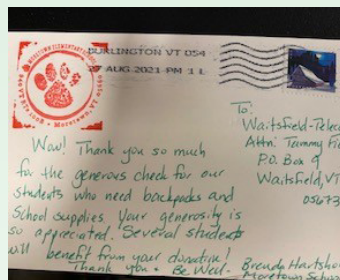 MORETOWN ELEMENTARY SCHOOL
940 VT RTE 100B • Moretown, VT
BURLINGTON VT 054
27 AUG 2021 PM 1 L
To:
Waitsfield-Teleco
Attn: Tammy Fi
P.O. Box 9
Waitsfield, VT
05673
Wow! Thank you so much
for the generous check for our
students who need backpacks and
School supplies. Your generosity is
so appreciated. Several students
will benefit from your donation!
Thank you • Be Well.
Brenda Hartsho
Moretown School